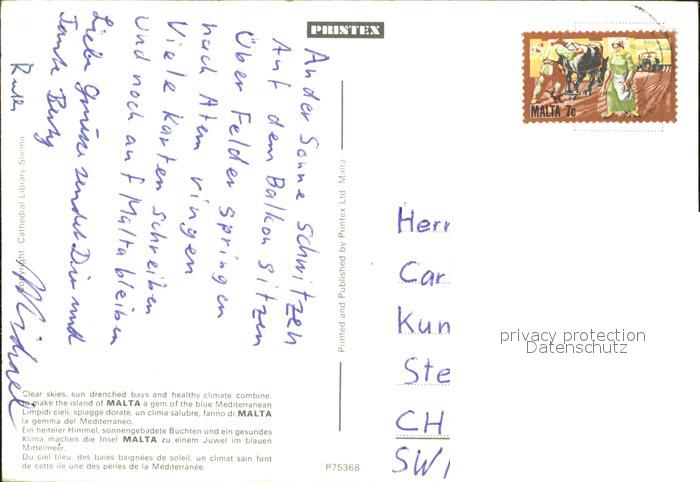 PRINTEX
An der Sonne Schwitzen
Auf dem Balkon Sitzen
Über Felder Springen
nach Atem ringen
Viele Karten schreiben
Und noch auf Malta bleiben
Liebe Grüsse sendet Dir und
Tante Berty
Michael
Copyright: Cathedral Library Sliema
Clear skies, sun drenched bays and healthy climate combine
to make the island of MALTA a gem of the blue Mediterranean
Limpidi cieli, spiagge dorate, un clima salubre, fanno di MALTA
la gemma del Mediterraneo.
Ein heiterer Himmel, sonnengebadete Buchten und ein gesundes
Klima machen die Insel MALTA zu einem Juwel im blauen
Mittelmeer.
Du ciel bleu, des baies baignées de soleil, un climat sain font
de cette île une des perles de la Méditerranée.
P75368
Printed and Published by Printex Ltd Malta
MALTA 7c
Herr
Car
Kun
Ste
CH
SWI
privacy protection
Datenschutz